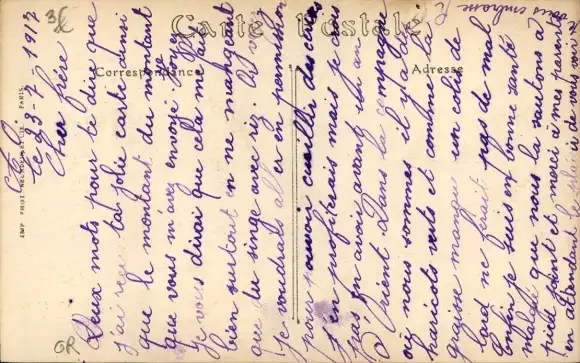 Carte Postale
Correspondance
Adresse
le 23-7-1917
Cher frère
Deux mots pour te dire que
j'ai reçu ta jolie carte ainsi
que le montant du mandat
que vous m'avez envoyé
je vous dirai que cela m'a fait
bien surtout en ne mangeant
que du singe avec riz.
je voudrais aller en permission
pour pouvoir cueillir des
j'en profiterais mais je
pas en avoir avant
d'Orient Dans la campagne
où nous sommes il y a des
haricots verts et comme la
graisse manque un colis de
lard ne ferait pas de mal
Enfin je suis en bonne santé
malgré que nous la sautons à
pieds joint et merci à mes parents
en attendant le plaisir de vous voir je
vous embrasse
IMP PHOT
PARIS